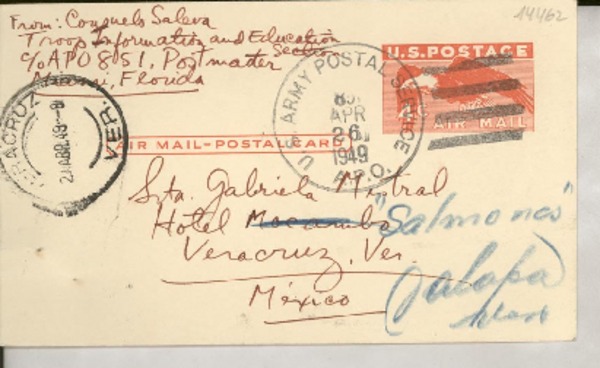 14462
From: Consuelo Saleva
Troop Information and Education
Section
c/o APO 851, Postmaster
Miami, Florida
U.S. POSTAGE
4¢
AIR MAIL
U.S. ARMY POSTAL SERVICE
851
APR
26
1949
A.P.O.
VERACRUZ
VER.
AIR MAIL-POSTAL CARD
Sta. Gabriela Mistral
Hotel Mocambo "Salmones"
Veracruz, Ver.
México
Jalapa